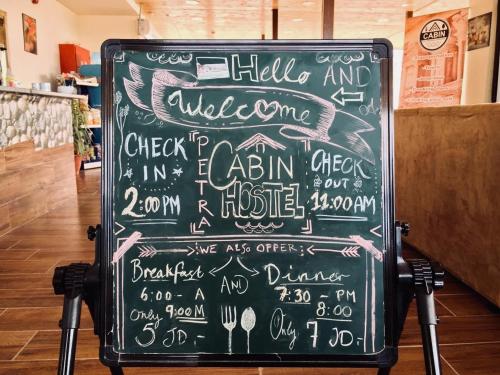 Hello AND
Welcome
CHECK IN
2:00 PM
PETRA
CABIN
HOSTEL
CHECK OUT
11:00 AM
WE ALSO OFFER:
Breakfast AND Dinner
6:00 - A
9:00 M
Only 5 JD.-
7:30 - PM
8:00
Only 7 JD.-
CABIN